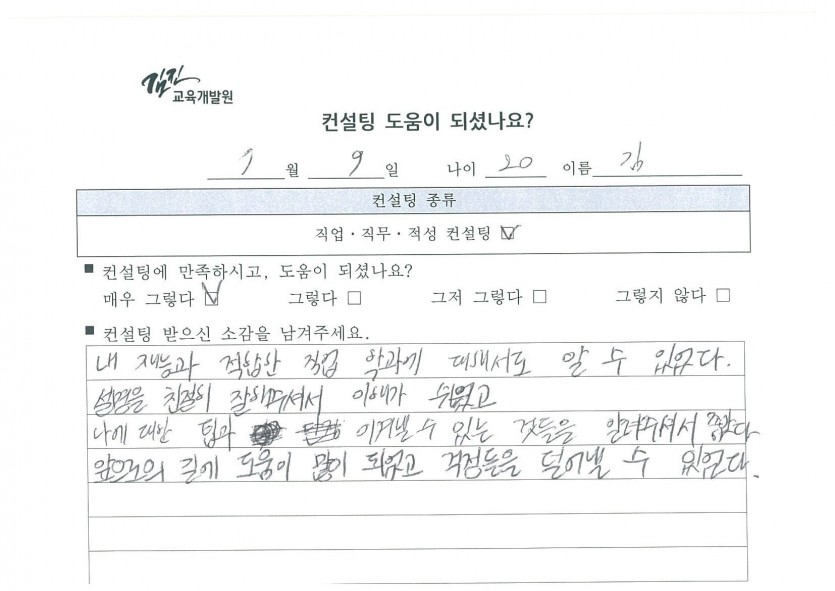 김진
교육개발원
컨설팅 도움이 되셨나요?
9월 9일 나이 20 이름 김
컨설팅 종류
직업·직무·적성 컨설팅 ☑
■ 컨설팅에 만족하시고, 도움이 되셨나요?
매우 그렇다 ☑ 그렇다 □ 그저 그렇다 □ 그렇지 않다 □
■ 컨설팅 받으신 소감을 남겨주세요.
내 재능과 적합한 직업 학과에 대해서도 알 수 있었다.
설명을 친절히 잘해주셔서 이해가 쉬웠고
나에 대한 팁과 이겨낼 수 있는 것들을 알려주셔서 좋았다
앞으로의 길에 도움이 많이 되었고 걱정들을 덜어낼 수 있었다.